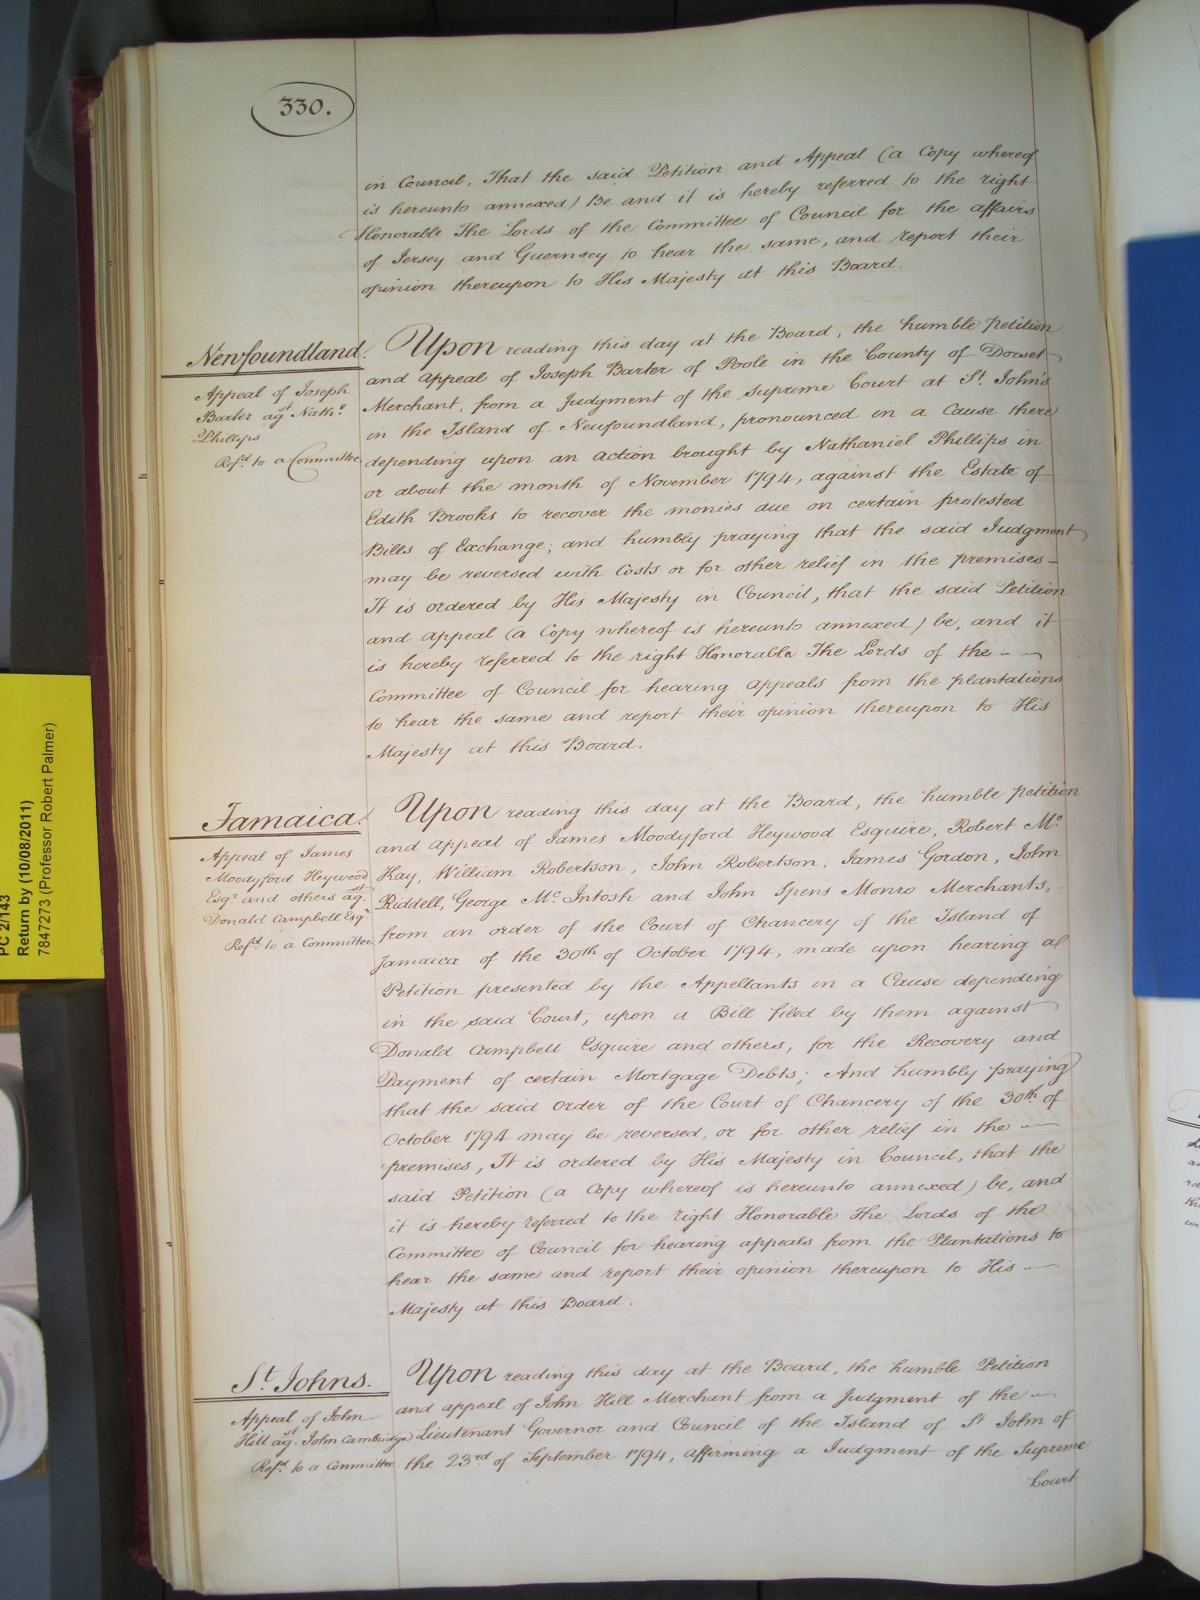 330.
in Council, That the said Petition and Appeal (a Copy whereof
is hereunto annexed) Be and it is hereby referred to the right
Honorable The Lords of the Committee of Council for the affairs
of Jersey and Guernsey to hear the same, and report their
opinion thereupon to His Majesty at this Board.
Newfoundland.
Appeal of Joseph
Barter agst Nathl.
Phillips.
Refd. to a Committee
Upon reading this day at the Board, the humble petition
and appeal of Joseph Barter of Poole in the County of Dorset
Merchant, from a Judgment of the supreme Court at St. John's
in the Island of Newfoundland, pronounced in a Cause there
depending upon an action brought by Nathaniel Phillips in
or about the month of November 1794, against the Estate of
Edith Brooks to recover the monies due on certain protested
Bills of Exchange; and humbly praying that the said Judgment
may be reversed with Costs or for other relief in the premises -
It is ordered by His Majesty in Council, that the said Petition
and appeal (a Copy whereof is hereunto annexed) be, and it
is hereby referred to the right Honorable The Lords of the - -
Committee of Council for hearing appeals from the plantations
to hear the same and report their opinion thereupon to His
Majesty at this Board.
Jamaica.
Appeal of James
Moodyford Heywood
Esqr. and others agst.
Donald Campbell Esqr.
Refd. to a Committee
Upon reading this day at the Board, the humble petition
and appeal of James Moodyford Heywood Esquire, Robert Mc.
Hay, William Robertson, John Robertson, James Gordon, John
Riddell, George Mc.Intosh and John Spens Monro Merchants,
from an order of the Court of Chancery of the Island of
Jamaica of the 30th of October 1794, made upon hearing a
Petition presented by the Appellants in a Cause depending
in the said Court, upon a Bill filed by them against
Donald Campbell Esquire and others, for the Recovery and
Payment of certain Mortgage Debts; And humbly praying
that the said Order of the Court of Chancery of the 30th. of
October 1794 may be reversed, or for other relief in the -
premises, It is ordered by His Majesty in Council, that the
said Petition (a Copy whereof is hereunto annexed) be, and
it is hereby referred to the right Honorable The Lords of the
Committee of Council for hearing appeals from the Plantations to
hear the same and report their opinion thereupon to His -
Majesty at this Board.
St. Johns.
Appeal of John
Hill agst. John Cambridge
Refd. to a Committee
Upon reading this day at the Board, the humble Petition
and appeal of John Hill Merchant from a Judgment of the -
Lieutenant Governor and Council of the Island of St John of
the 23rd of September 1794, affirming a Judgment of the Supreme
Court
PC 2/143
Return by (10/08/2011)
7847273 (Professor Robert Palmer)